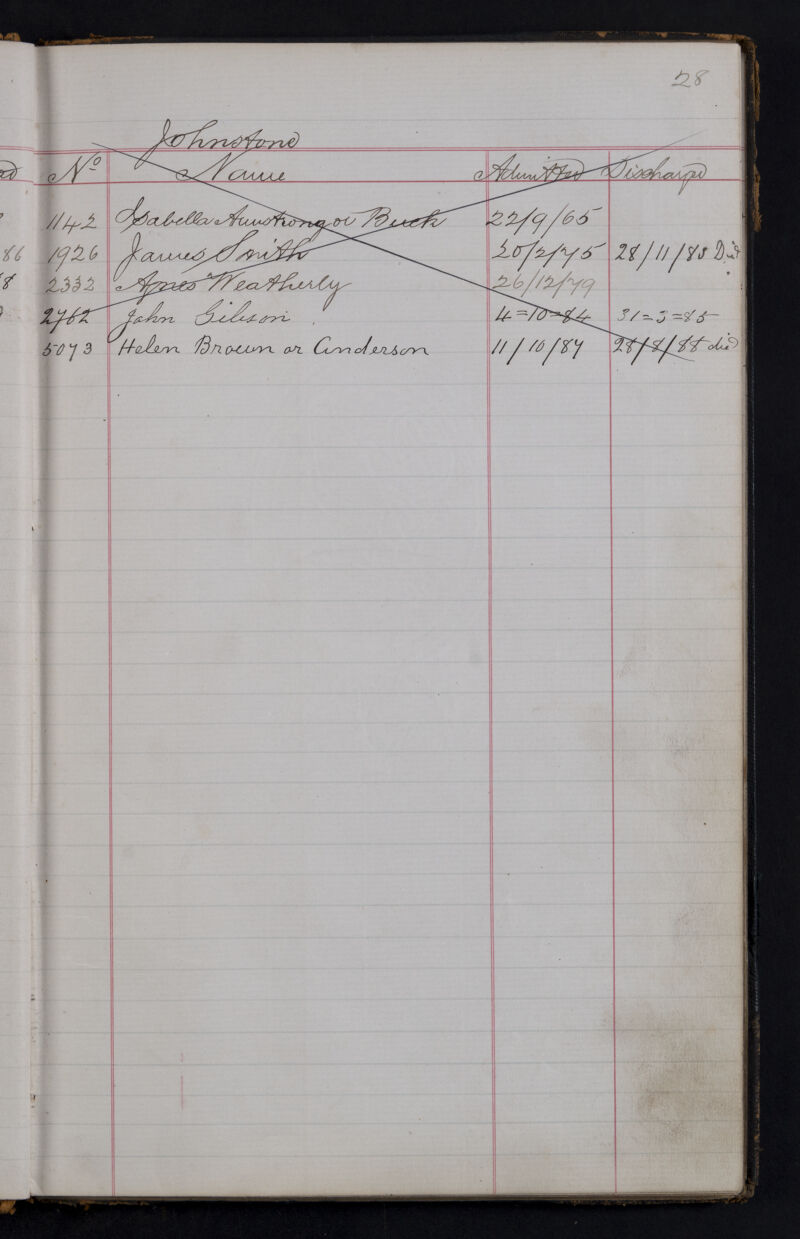 28
Johnstone
No Name Admitted Discharged
1142 Isabella Armstrong or Buck 22/9/65
86 1926 James Smith 20/2/75 28/11/85 Died
8 2332 Agnes Weatherly 26/12/79
2762 John Gibson 4=10=84 31=3=85
5073 Helen Brown or Anderson 11/10/87 28/8/88 died